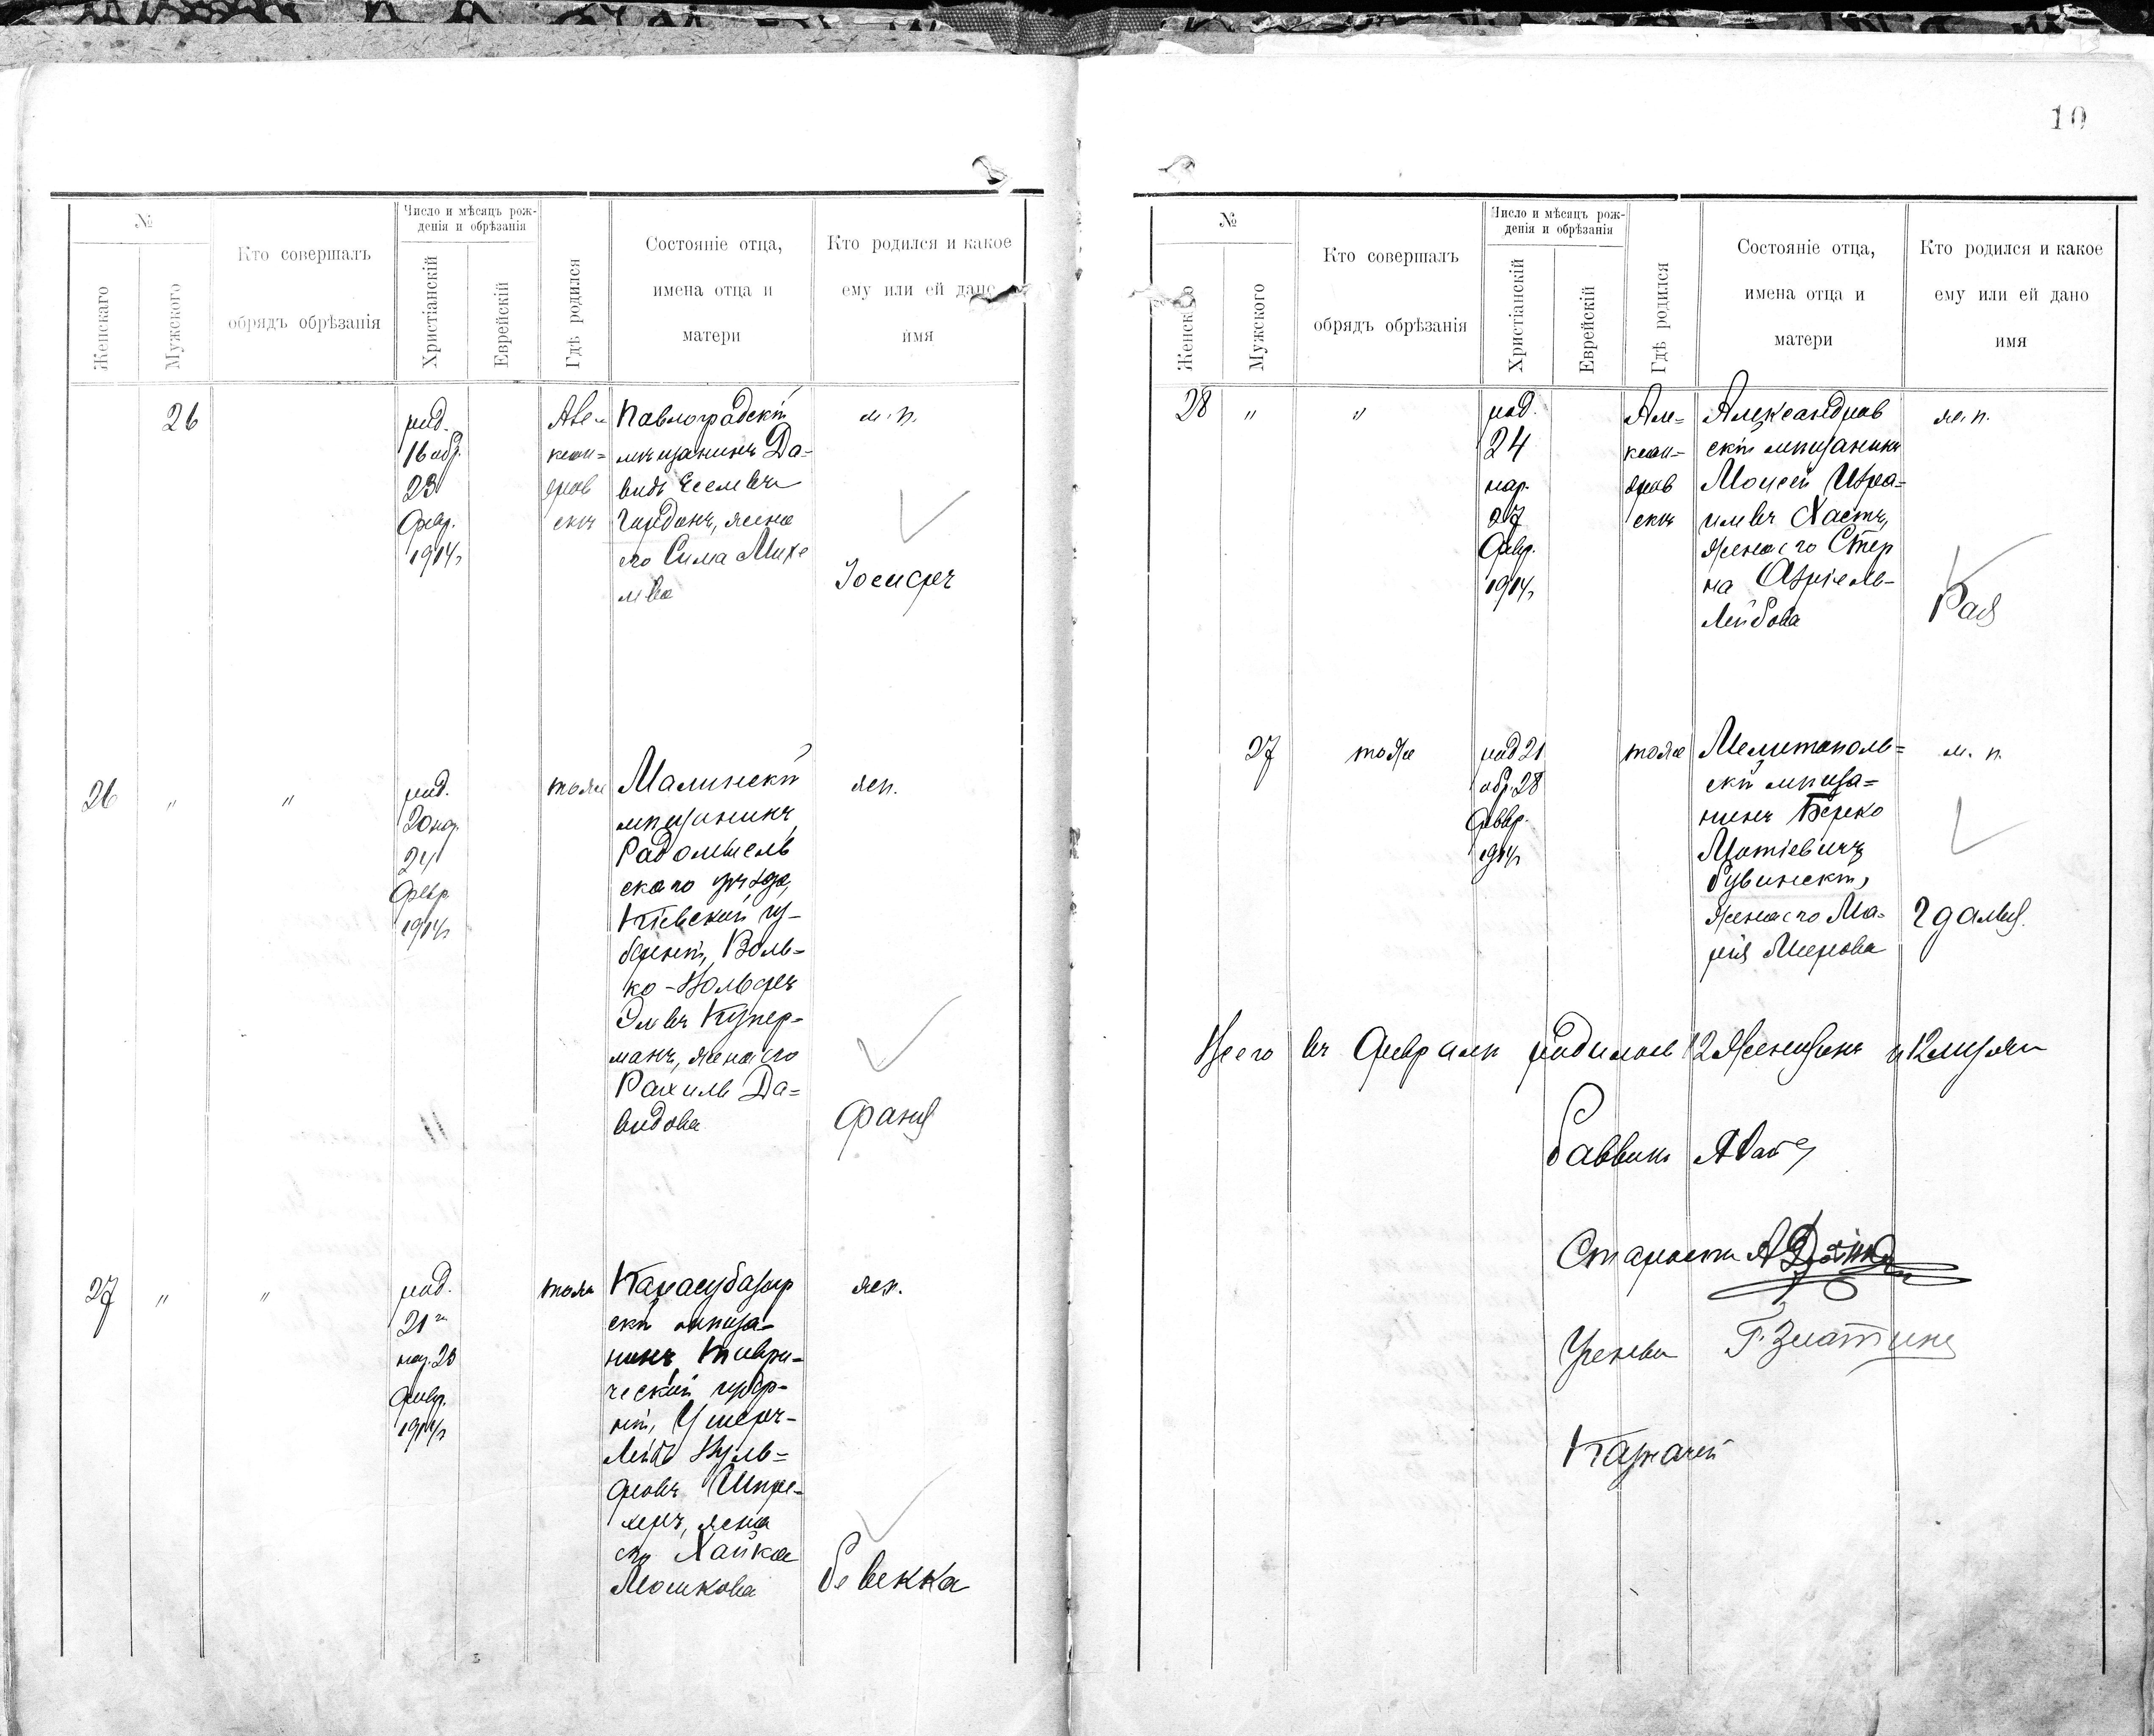 10
№
Женскаго
Мужского
Кто совершалъ
обрядъ обрѣзанія
Число и мѣсяцъ рож-
денія и обрѣзанія
Христіанскій
Еврейскій
Гдѣ родился
Состояніе отца,
имена отца и
матери
Кто родился и какое
ему или ей дано
имя
26
род.
16 обр.
23
Февр.
1914 г.
Але-
ксан=
дров
скъ
Павлоградскій
мѣщанинъ Да-
видъ
Гордонъ, жена
его Сима Михе
лева
м. п.
Іосифъ
26
"
"
род.
20 нар.
24
Февр
1914 г.
тоже
Малинскій
мѣщанинъ
Радомысль
скаго уѣзда,
Кіевской гу-
берніи, Воль-
ко-Вольфъ
Элевъ Купер-
манъ, жена его
Рахиль Да=
видова
ж п.
Фаня
27
"
"
род.
21 го
нар. 28
Февр.
1914 г.
тоже
Карасубазар
скій мѣща-
нинъ Таври-
ческой губер-
ніи, Ушеръ-
Лейбъ Вуль=
фовъ Шпре-
херъ, жена
его Хайка
Мошкова
ж п.
Ревекка
№
Женскаго
Мужского
Кто совершалъ
обрядъ обрѣзанія
Число и мѣсяцъ рож-
денія и обрѣзанія
Христіанскій
Еврейскій
Гдѣ родился
Состояніе отца,
имена отца и
матери
Кто родился и какое
ему или ей дано
имя
28
"
"
род.
24
нар.
27
Февр.
1914 г.
Але=
ксан-
дров
скъ
Александров
скій мѣщанинъ
Моисей Изра=
илевъ Хастъ,
жена его Стер
на Азріель-
Лейбова
ж. п.
Рая
27
тоже
род 21
обр. 28
Февр.
1914 г.
тоже
Мелитополь=
скій мѣща=
нинъ Берко
Мотіевичъ
жена его Ма-
рія Меерова
м. п.
Гдалья.
Всего въ Февралѣ родилось 12 женщинъ и 12 мужчин
Раввинъ
Староста
Ученый Г. Златинъ
Казначей